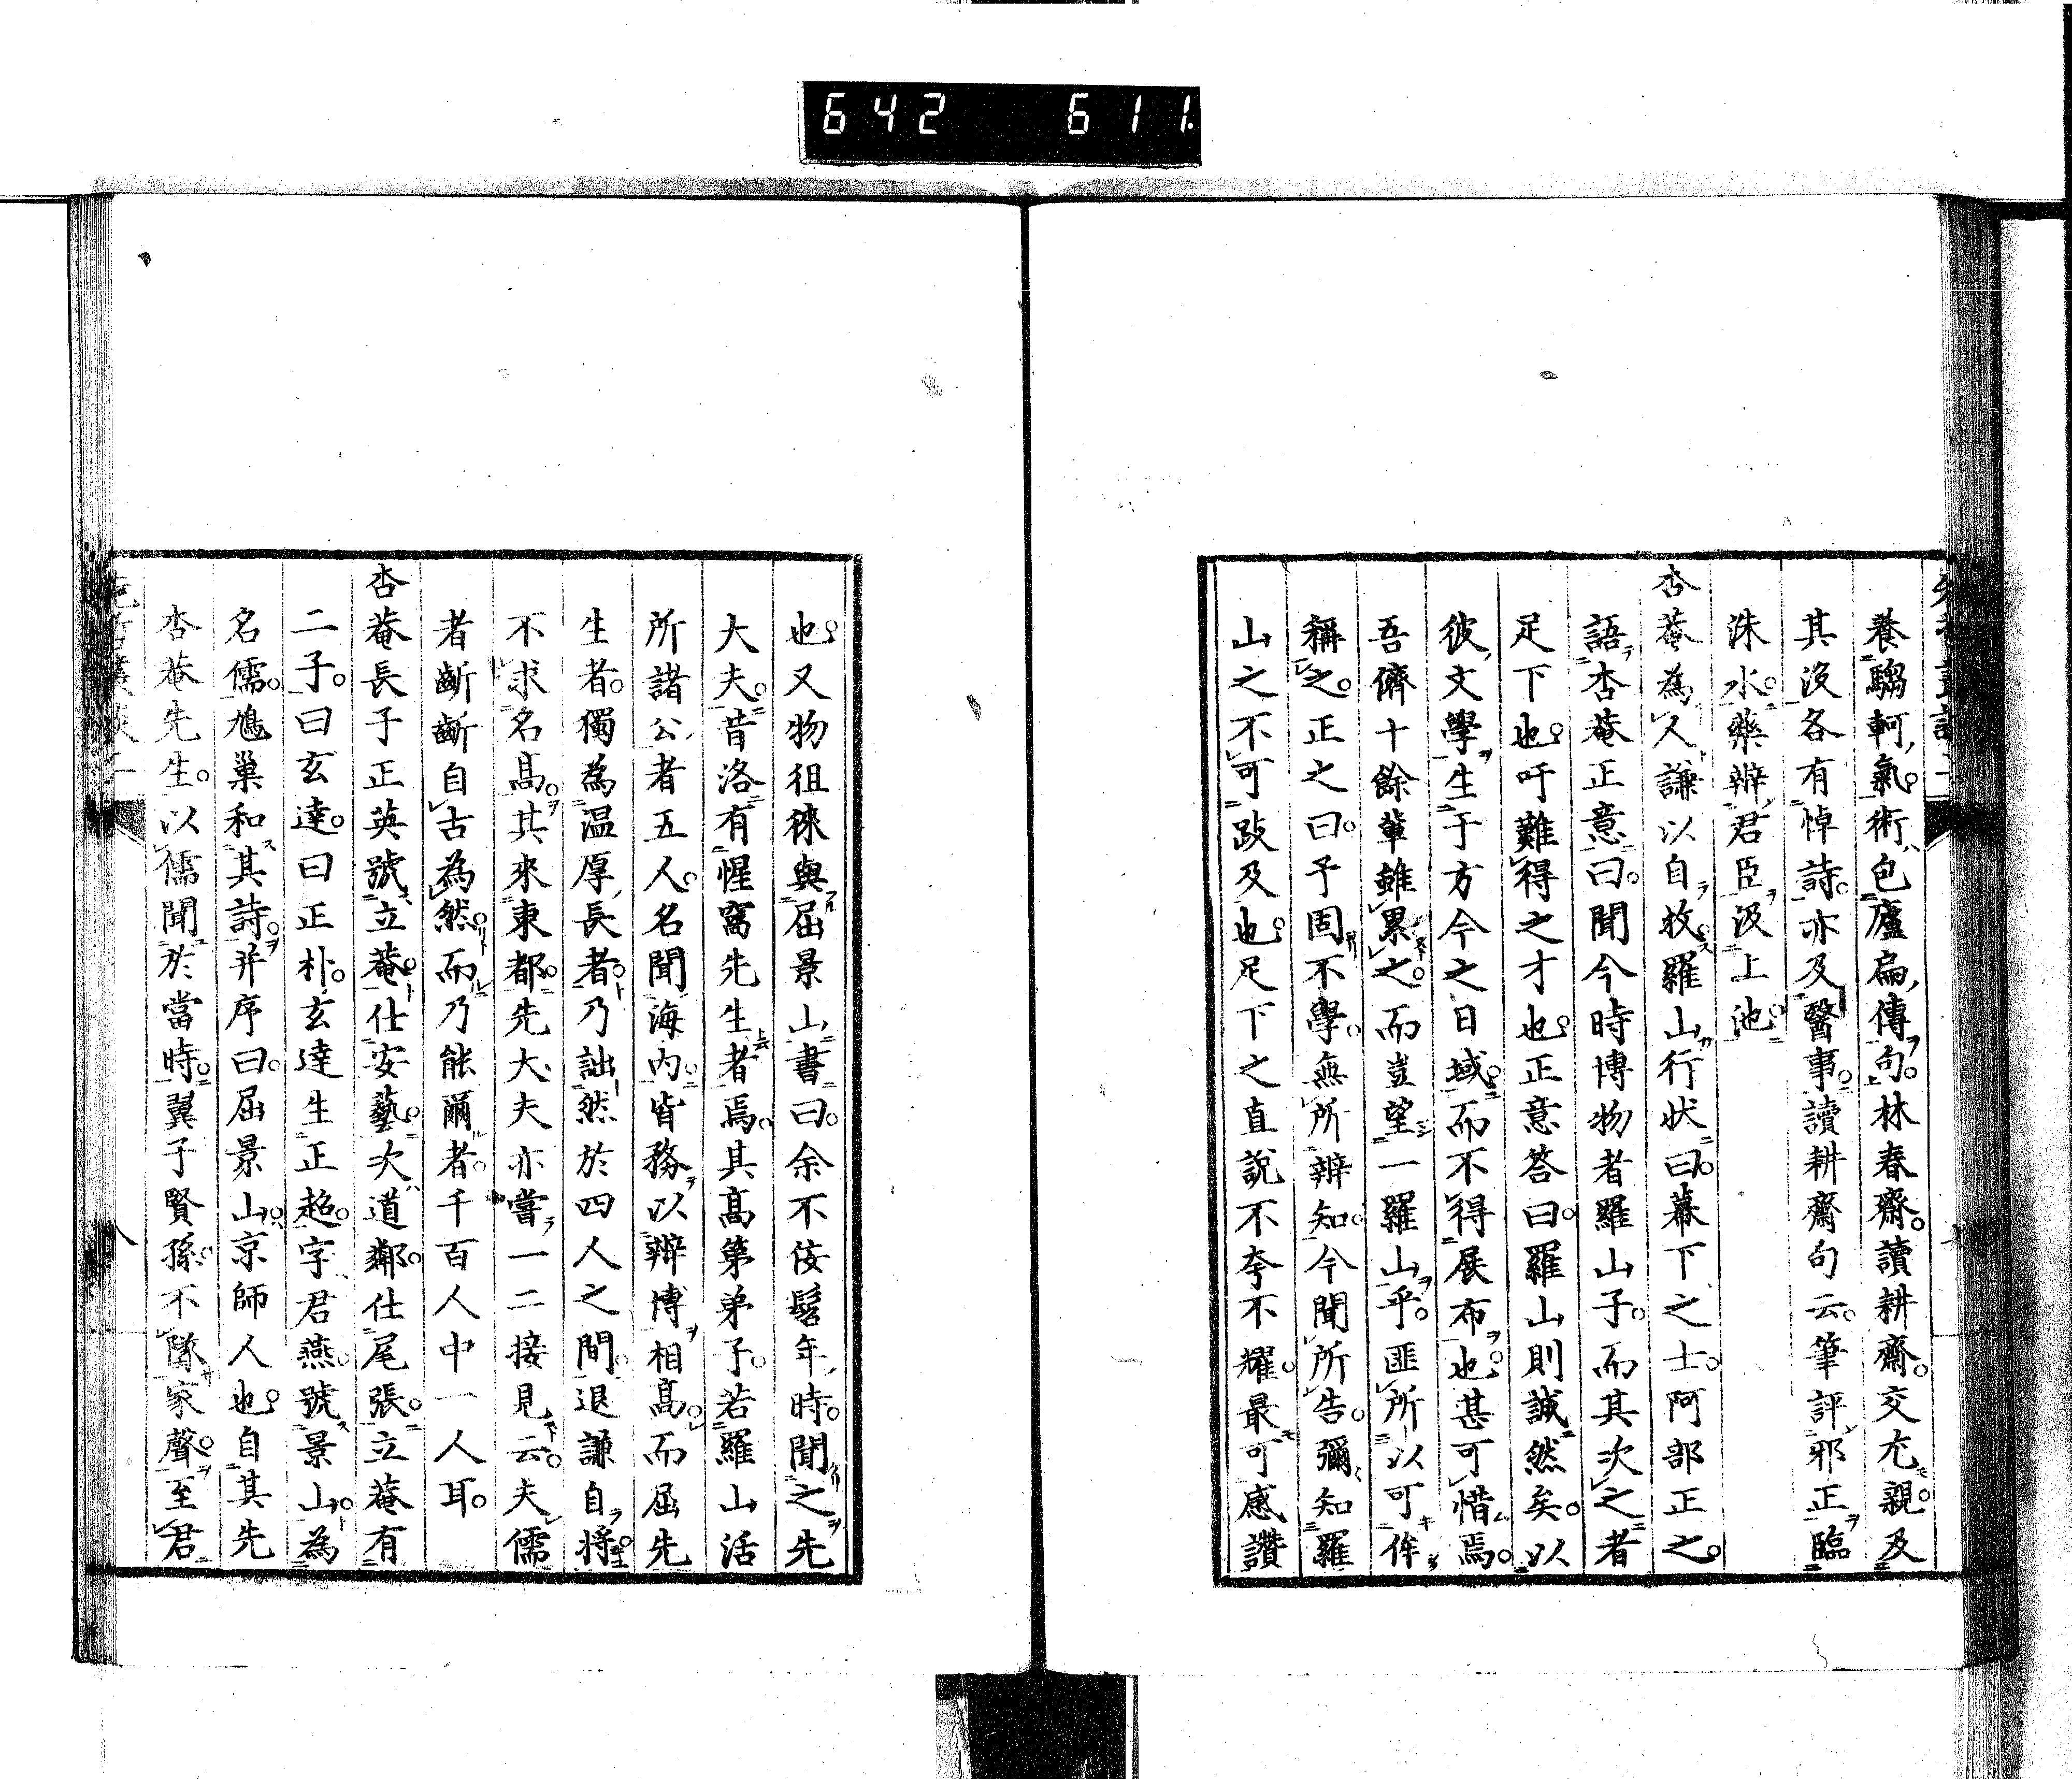 642 611.
養騶軻氣術包廬扁傳句林春齋讀耕齋交尤親及
其沒各有悼詩亦及醫事讀耕齋句云筆評邪正臨
洙水藥辨君臣汲上池
杏菴為人謙以自牧羅山行狀曰幕下之士阿部正之
語杏菴正意曰聞今時博物者羅山子而其次之者
足下也吁難得之才也正意答曰羅山則誠然矣以
彼文學生于方今之日域而不得展布也甚可惜焉
吾儕十餘輩雖累之而豈望一羅山乎匪所以可侔
稱之正之曰予固不學無所辨知今聞所告彌知羅
山之不可跂及也足下之直說不夸不耀最可感讚
也又物徂徠與屈景山書曰余不佞髫年時聞之先
大夫昔洛有惺窩先生者焉其高第弟子若羅山活
所諸公者五人名聞海內皆務以辯博相高而屈先
生者獨為温厚長者乃詘然於四人之間退謙自將
不求名高其來東都先大夫亦嘗一二接見云夫儒
者齗齗自古為然而乃能爾者千百人中一人耳
杏菴長子正英號立菴仕安藝次道鄰仕尾張立菴有
二子曰玄達曰正朴玄達生正超字君燕號景山為
名儒鳩巢和其詩并序曰屈景山京師人也自其先
杏菴先生以儒聞於當時翼子賢孫不隊家聲至君
八